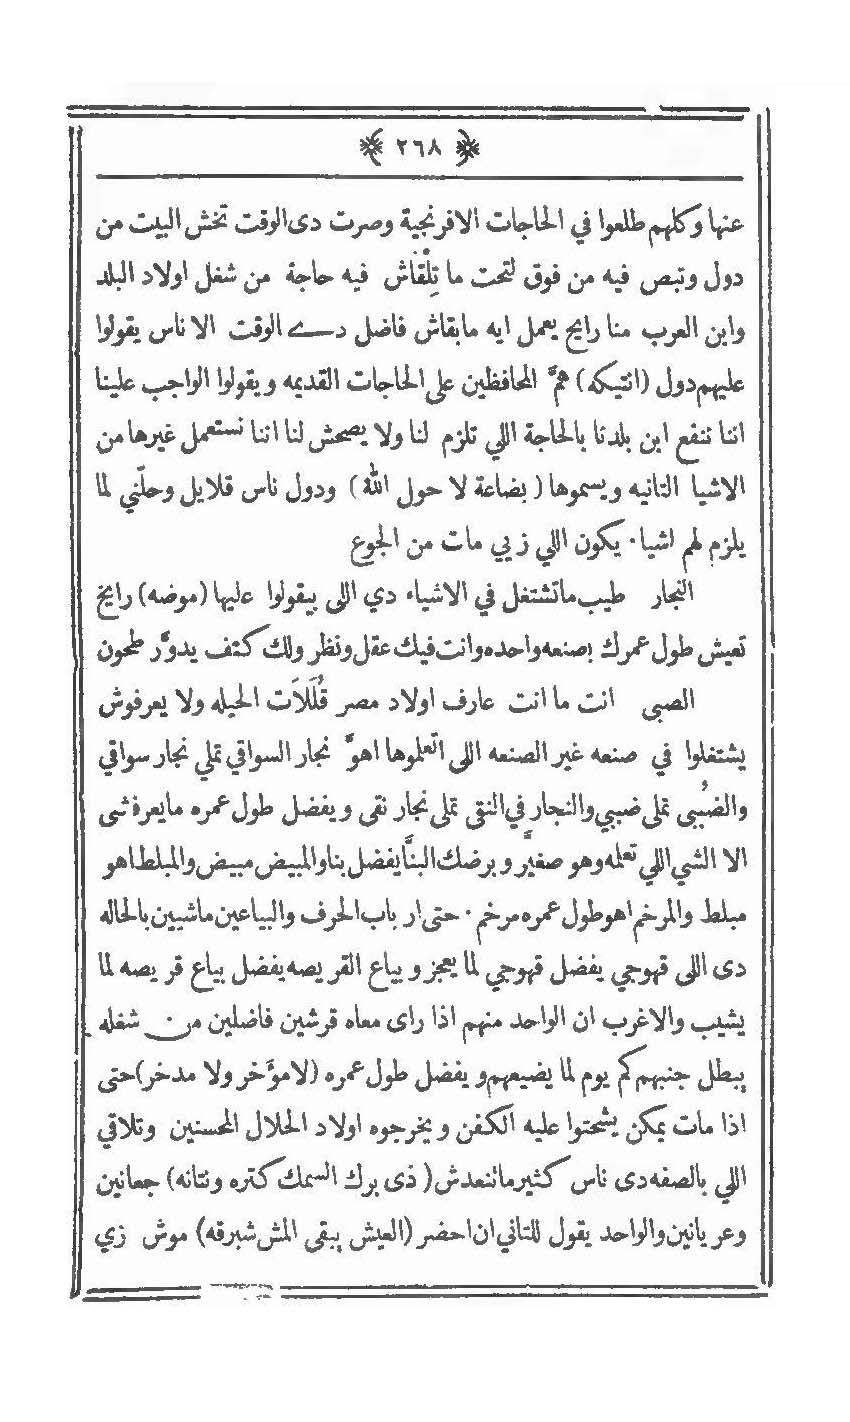 ﴿ ٢٦٨ ﴾
عنها وكلهم طلعوا في الحاجات الافرنجية وصرت دى الوقت تخش البيت من
دول وتبص فيه من فوق لتحت ما تِلْقَاش فيه حاجة من شغل اولاد البلد
وابن العرب منا رايح يعمل ايه مابقاش فاضل دے الوقت الا ناس يقولوا
عليهم دول (انتيكه) همَّ المحافظين على الحاجات القديمه ويقولوا الواجب علينا
اننا ننفع ابن بلدنا بالحاجة اللي تلزم لنا ولا يصحش لنا اننا نستعمل غيرها من
الاشيا التانيه ويسموها (بضاعة لا حول الله) ودول ناس قلايل وحلّني لما
يلزم لهم اشيا٠ يكون اللي زيي مات من الجوع
النجار طيب ماتشتغل في الاشياء دي اللى بيقولوا عليها (موضه) رايح
تعيش طول عمرك بصنعه واحده وانت فيك عقل ونظر ولك كتف يدوَّر طحون
الصبى انت ما انت عارف اولاد مصر قُلَلاَت الحيله ولا يعرفوش
يشتغلوا في صنعه غير الصنعه اللى اتعلموها اهوَّ نجار السواقي تملي نجار سواقي
والضُببى تملى ضببي والنجار في النقى تملى نجار نقى ويفضل طول عمره مايعرفشى
الا الشي اللي تعلمه وهو صغيَّر وبرضك البنَّا يفضل بنا والمبيض مبيض والمبلط اهو
مبلط والمرخم اهو طول عمره مرخم٠ حتى ارباب الحرف والبياعين ماشيين بالحاله
دى اللى قهوجي يفضل قهوجي لما يعجز وبياع القريصه يفضل بياع قريصه لما
يشيب والاغرب ان الواحد منهم اذا راى معاه قرشين فاضلين من شغله
يبطل جنبهم كم يوم لما يضيعهم ويفضل طول عمره (لا موَّخر ولا مدخر) حتى
اذا مات يمكن يشحتوا عليه الكفن ويخرجوه اولاد الحلال المحسنين وتلاقي
اللي بالصفه دى ناس كثير ماتنعدش (ذى برك السمك كتره ونتانه) جعانين
وعريانين والواحد يقول للتاني ان احضر (العيش يبقى المش شبرقه) موش زي